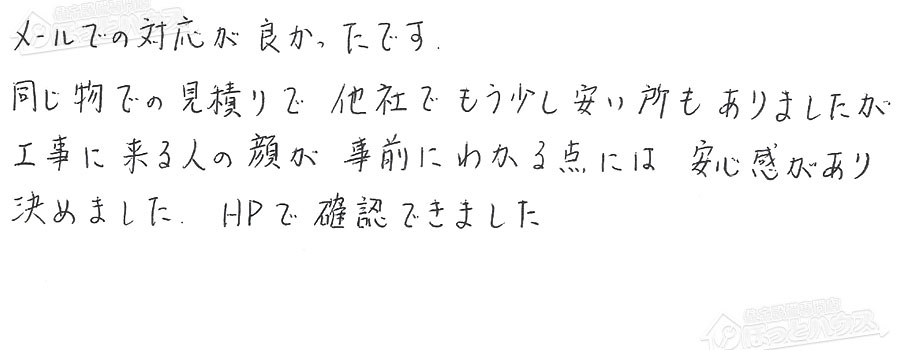 メールでの対応が良かったです.
同じ物での見積りで 他社でもう少し安い所もありましたが
工事に来る人の顔が 事前にわかる点には 安心感があり
決めました. HPで確認できました
住宅設備専門店
ほっとハウス